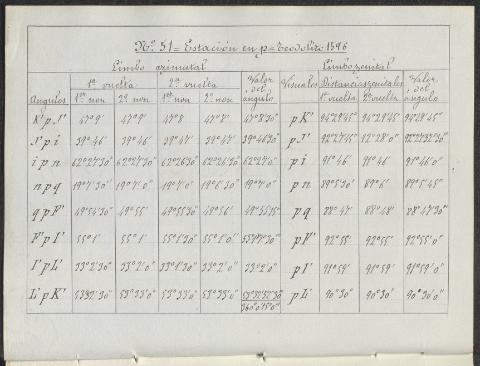 Nº 51 = Estación en p = teodolito 1596
Limbo azimutal Limbo zenital
1ª vuelta 2ª vuelta Valor del ángulo Visuales Distancias zenitales Valor del ángulo
Angulos 1er non 2º non 1er non 2º non 1ª vuelta 2ª vuelta
K'pJ' 47°9' 47°9' 47°8' 47°8' 47°8'30" pK'
J'pi 39°46' 39°46' 39°47' 39°47' 39°46'30" pJ'
ipn 62°27'30" 62°27'30" 62°26'30" 62°26'30" 62°27'0" pi 91°46' 91°46' 91°46'0"
npq 19°7'30" 19°7'0" 19°7'0" 19°6'30" 19°7'0" pn 89°5'30" 89°6' 89°5'45"
qpF' 49°54'30" 49°55' 49°55'30" 49°56' pq 88°47' 88°48' 88°47'30"
F'pI' 55°1' 55°1' 55°1'30" 55°1'0" pF' 92°55' 92°55' 92°55'0"
I'pL' 33°2'30" 33°2'0" 33°1'30" 33°2'0" 33°2'0" pI' 91°59' 91°59' 91°59'0"
L'pK' 53°33'0" 53°33'0" 53°33'0" pL' 90°30' 90°30' 90°30'0"
360°0'15"0